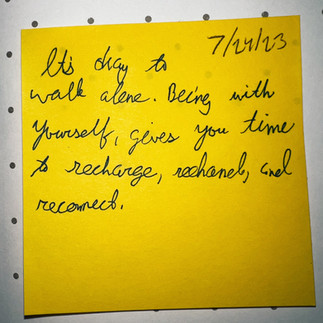 7/24/23
It's okay to
walk alone. Being with
Yourself, gives you time
to recharge, rechanel, and
reconnect.